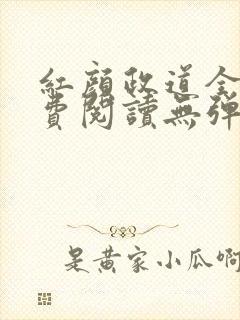 紅顏政道全
費閱讀無彈
是黃家小瓜啊